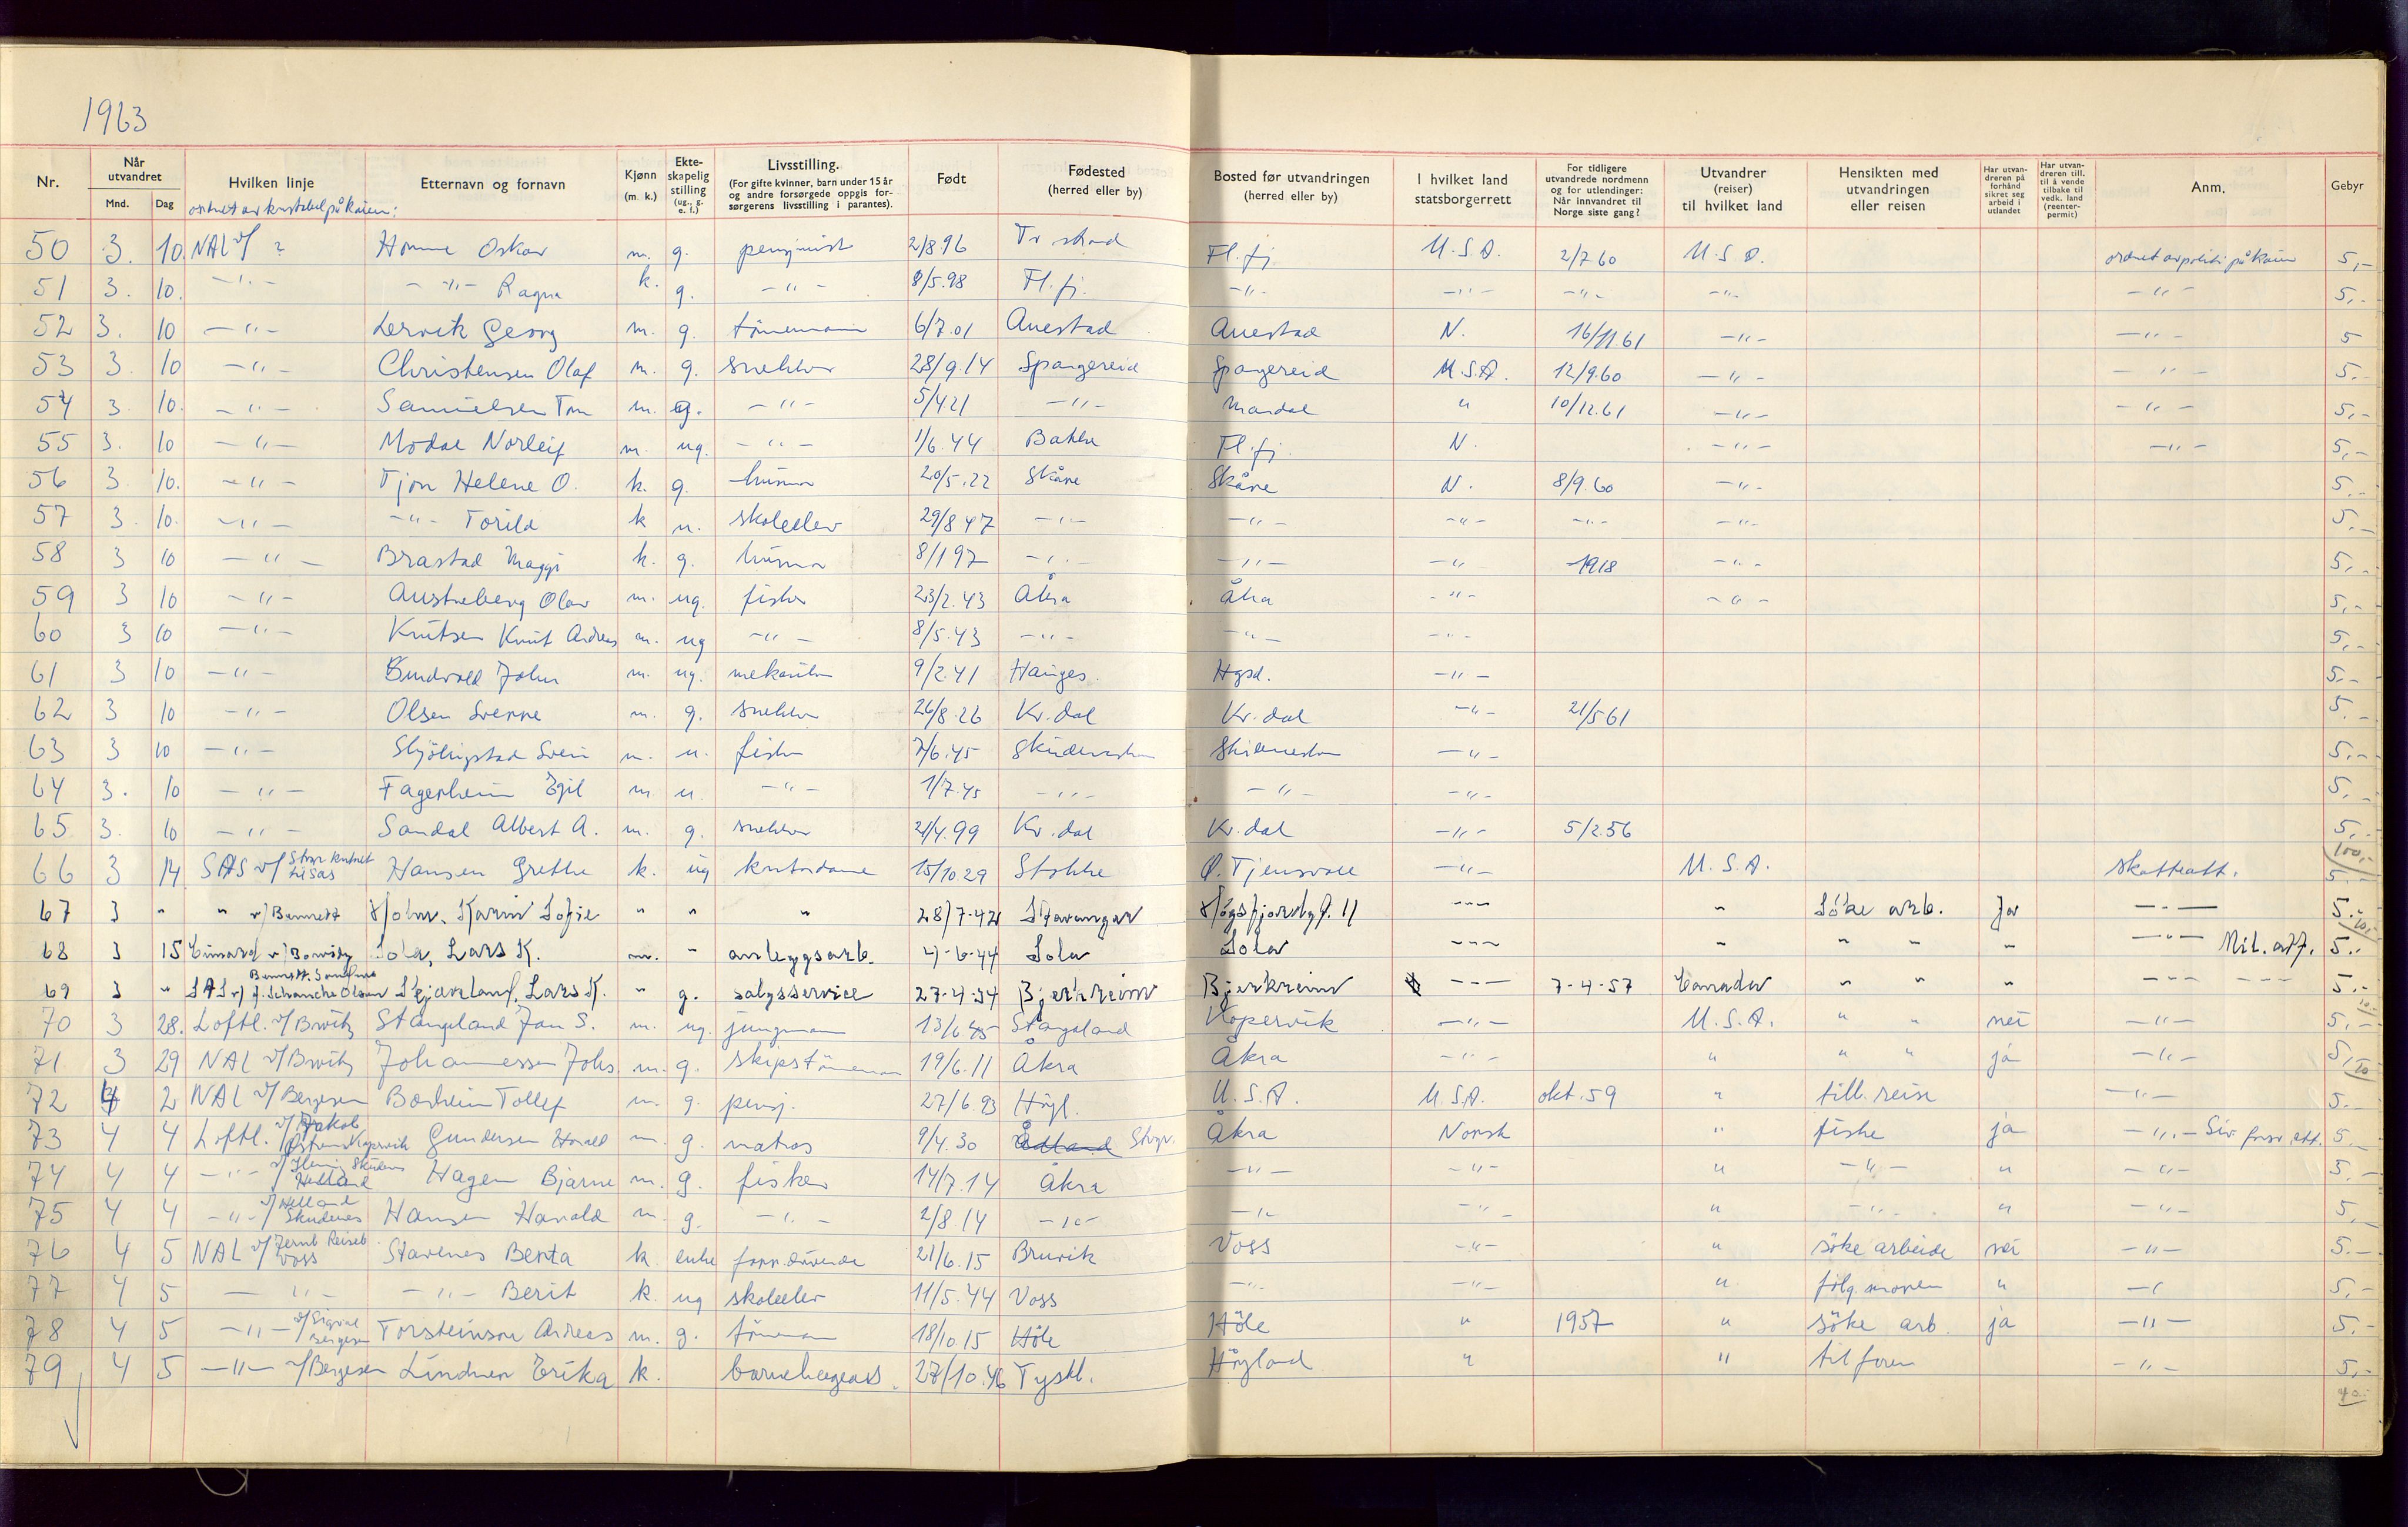 1963
Nr. Når utvandret Mnd. Dag Hvilken linje Etternavn og fornavn Kjønn (m. k.) Ekteskapelig stilling (ug., g. e. f.) Livsstilling. (For gifte kvinner, barn under 15 år og andre forsørgede oppgis forsørgerens livsstilling i parantes). Født Fødested (herred eller by) Bosted før utvandringen (herred eller by) I hvilket land statsborgerrett For tidligere utvandrede nordmenn og for utlendinger: Når innvandret til Norge siste gang? Utvandrer (reiser) til hvilket land Hensikten med utvandringen eller reisen Har utvandreren på forhånd sikret seg arbeid i utlandet Har utvandreren till. til å vende tilbake til vedk. land (reenterpermit) Anm. Gebyr
ordnet av på kaien:
50 3. 10. NAL v/ ? Homme Oskar m. g. pensjonist 2/8.96 Fl.fj U.S.A. 2/7 60 U.S.A. ordnet av politi på kaien 5,-
51 3. 10. -"- -"- Ragna k. g. -"- 8/5.98 Fl.fj. -"- -"- -"- -"- -"- 5,-
52 3. 10 -"- Lervik Georg m. g. tömmermann 6/7.01 Auestad Auestad N. 16/11.61 -"- -"- 5
53 3 10 -"- Christensen Olaf m. g. snekker 28/9.14 Spangereid Spangereid U.S.A. 12/9.60 -"- -"- 5.-
54 3 10. -"- Samuelsen Tom m. g. -"- 5/4 21 -"- Mandal " 10/12.61 -"- -"- 5,-
55 3. 10 -"- Modal Norleif m. ug. -"- 1/6.44 Bakke Fl.fj. N. -"- -"- 5,-
56 3 10. -"- Tjon Helene O. k. g. husmor 20/5.22 Skåre Skåre N. 8/9.60 -"- 5,-
57 3. 10. -"- -"- Torild k u. skoleelev 29/8 47 -"- -"- -"- -"- -"- 5,-
58 3 10 -"- Brastad Maggi k. g. husmor 8/1 97 -"- -"- -"- 1918 -"- 5,-
59 3 10 -"- Austreberg Olav m. ug. fisker 23/2.43 Åkra Åkra -"- -"- 5,-
60 3 10 -"- Knutsen Knut Andreas m. ug -"- 8/5.43 -"- -"- -"- 5,-
61 3 10 -"- John m. ug. mekaniker 9/2.41 Hauges. Hgsd. -"- 5,-
62 3 10 -"- Olsen Sverre m. g. snekker 26/8.26 Kv.dal Kv.dal -"- 21/5 61 5.-
63 3 10 -"- Svein m. u. fisker 7/6.45 -"- 5,-
64 3. 10 -"- Fagerheim Egil m u. -"- 1/7.45 -"- -"- -"- 5,-
65 3. 10 -"- Sandal Albert A. m. g. snekker 21/4.99 Kv.dal Kv.dal -"- 5/2.56 5,-
100,-
66 3 14 SAS v/ Hansen Grethe k. ug kontordame 15/10 29 Stokke Ø. Tjensvoll -"- U.S.A. skatteatt. 5.-
67 3 " " v/ Bennett Holm, Karin Sofie " " " 28/7-42 Stavanger Høgsfjordgt. 11 --- " Söke arb. Ja -"- 5.-
10,-
68 3 15 Cunard v/ Sola, Lars K. m. " anleggsarb. 4-6-44 Sola Sola --- " " " " -"- Mil.att. 5.-
69 3 " SAS v/ Bennett, Sandnes J. Schanche Olsen Skjæveland, Lars K. " g. salgsservice 27-4-34 Bjerkreim Bjerkreim --- 7-4-57 Canada " " " --- 5.-
10.-
70 3 28. Loftl. v/ Stangeland Jan S. m. ug. jungmann 13/6 45 Stangeland Kopervik -"- U.S.A. " " nei -"- 5,-
71 3 29 NAL v/ Johannessen Johs. m. g. 19/6.11 Åkra Åkra -"- " " " ja -"- 5,-
20
72 4 2 NAL v/ Bergesen Borheim Tollef m. g. pensj. 27/6.93 Høgl. U.S.A. U.S.A. okt.59 " tilb.reise -"- 5.-
73 4 4 Loftl. v/ Jakob Kopervik Gundersen Harald m. g. matros 9/4.30 Ådland Stvgr. Åkra Norsk " fiske ja -"- Siv. forsv. att. 5.-
74 4 4 -"- v/ Skudenes Helland Hagen Bjarne m. g. fisker 14/7.14 Åkra -"- -"- " -"- " -"- 5.-
75 4 4 -"- v/ Helland Skudenes Hansen Harald m g. -"- 2/8.14 -"- -"- -"- " -"- " -"- 5,-
76 4 5 NAL v/ Jernb Reiseb. Voss Stavenes Berta k enke 21/6.15 Bruvik Voss -"- " söke arbeide nei -"- 5.-
77 4 5 -"- -"- Berit k. ug skoleelev 11/5.44 Voss -"- -"- " følg.moren " -"- 5,-
78 4 5 -"- v/ Sigval Bergesen Torsteinson Andreas m. g. 18/10 15 Höle Höle " 1957 " söke arb. ja -"- 5.-
79 4 5 -"- v/ Bergesen Lindner Erika k. 27/10.46 Tyskl. Høyland " " -"- 5,-
40.-